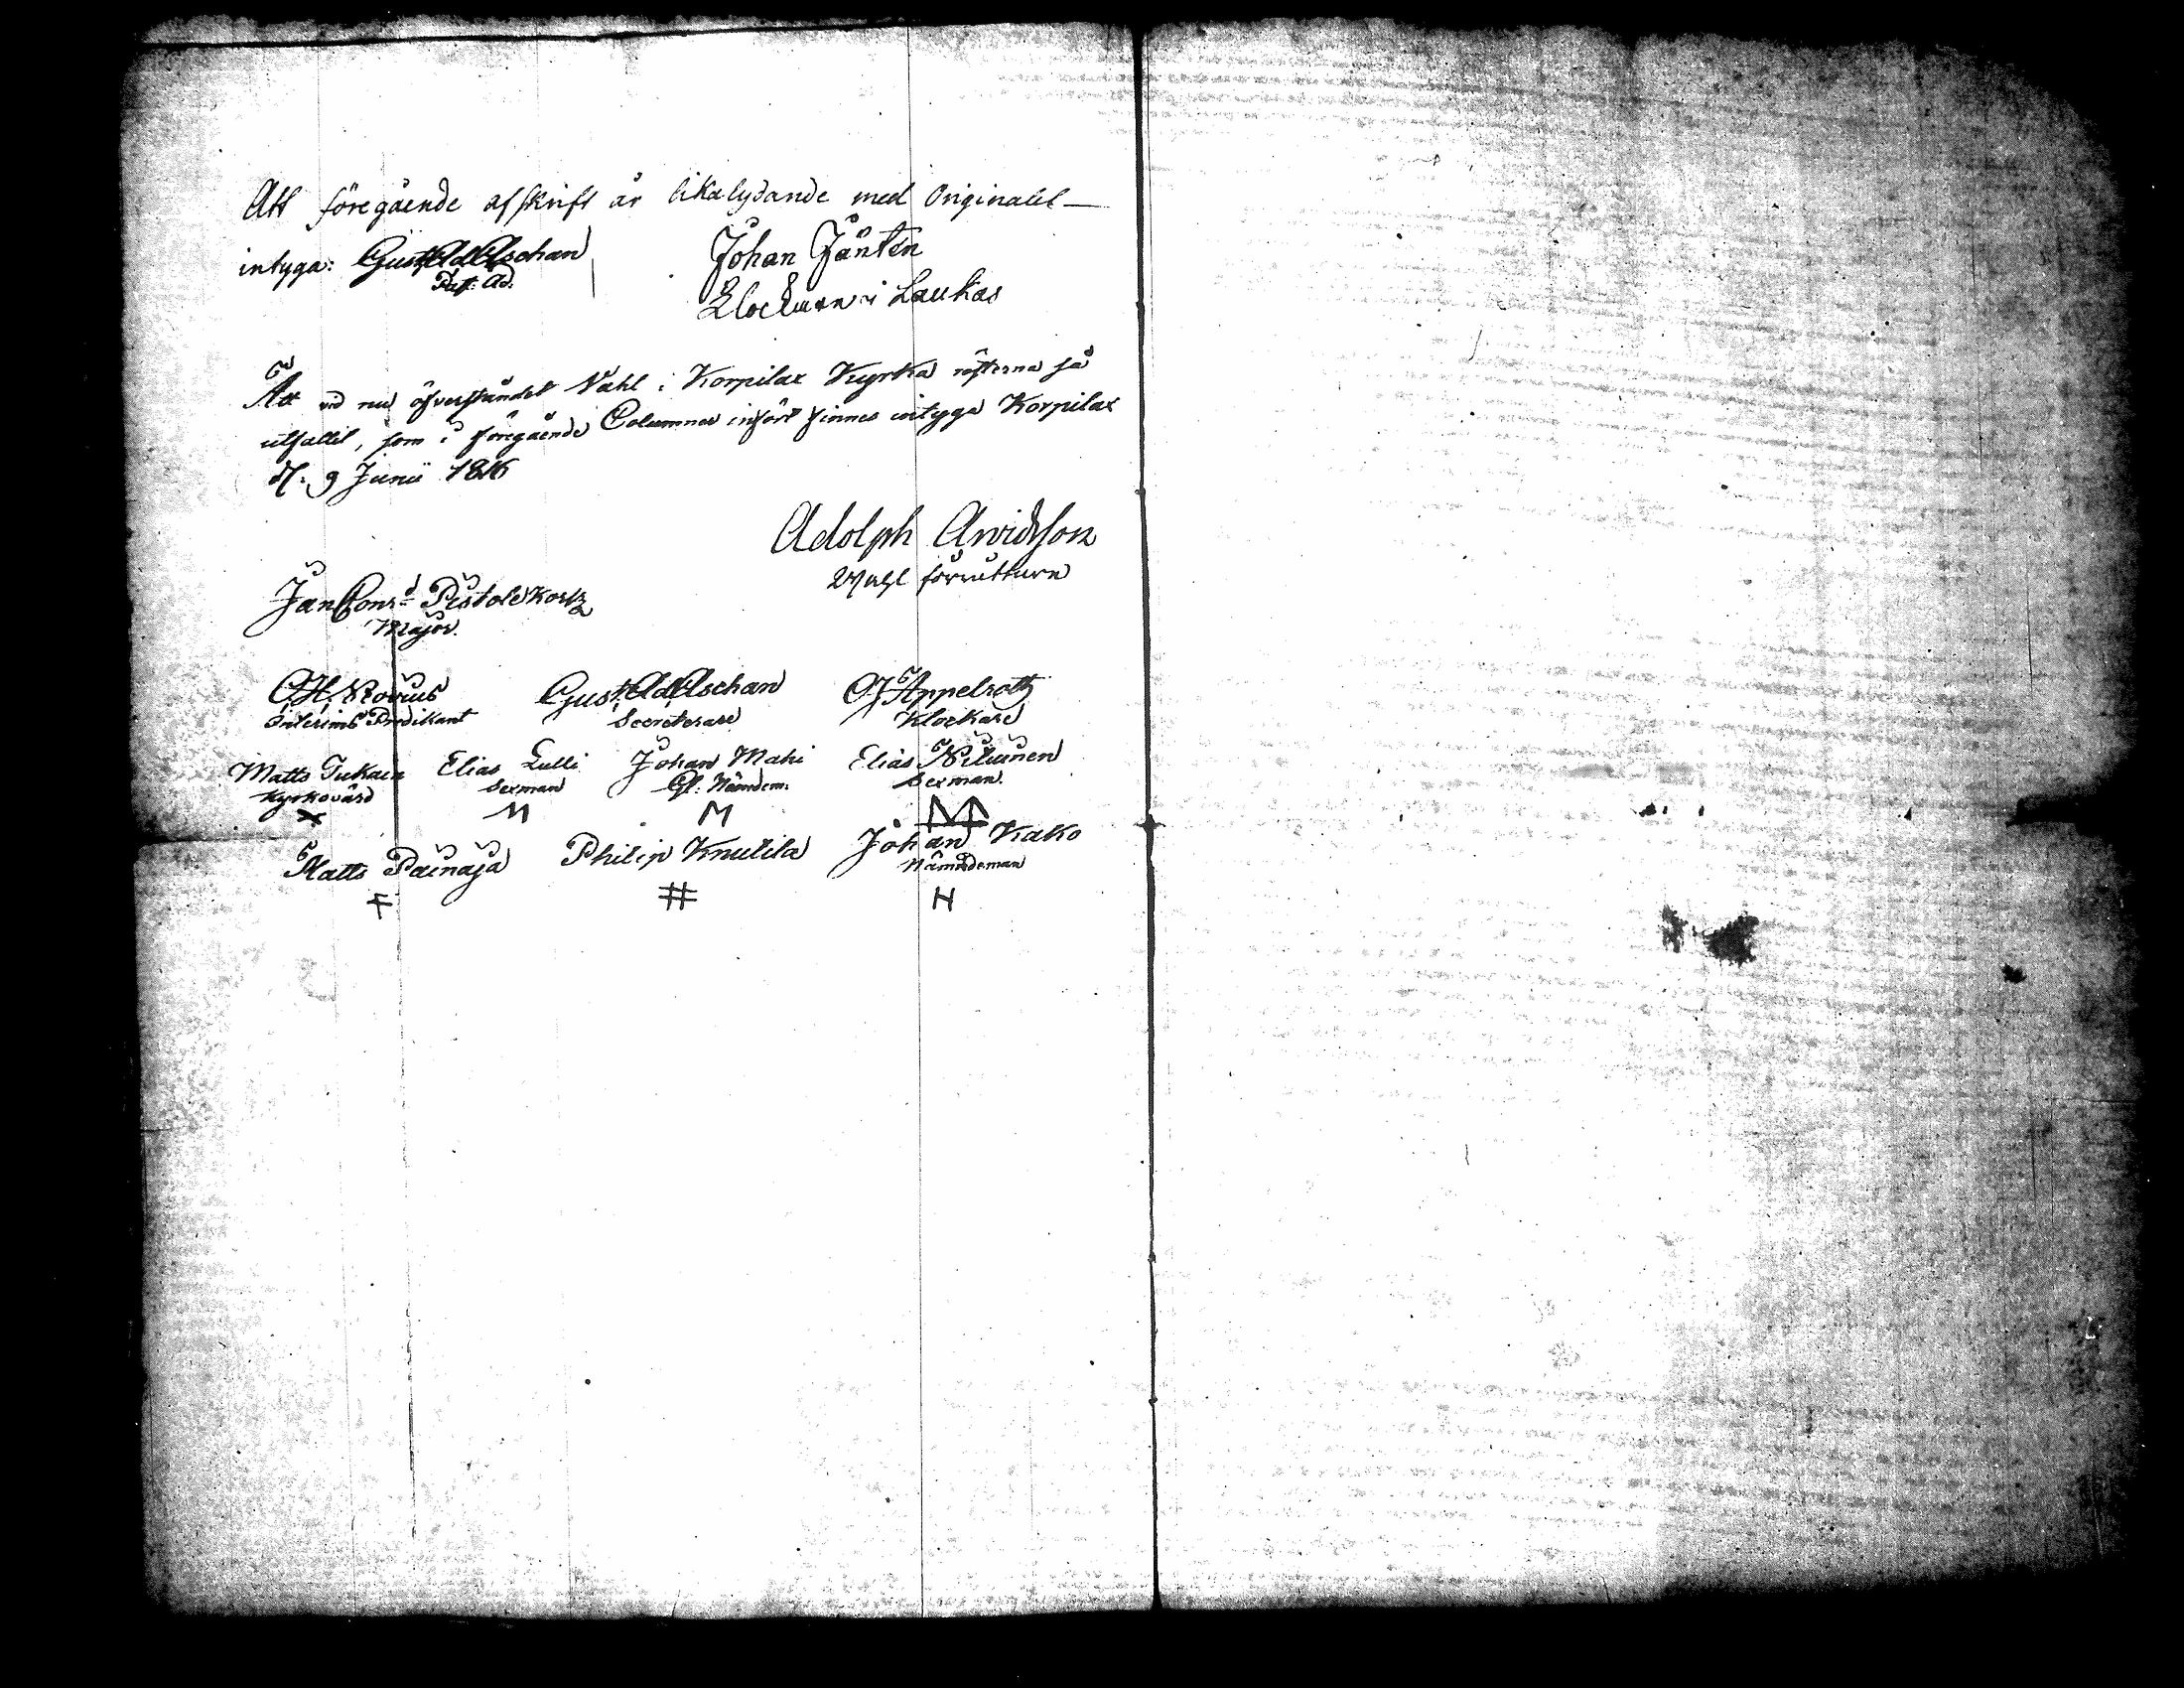 Att föregående afskrift är likalydande med Originalet —
intyga: Gust. Ad. Aschan
Past: Ad.
Johan Jäntén
Klockare i Laukas
Att vid nu öfverståndet Vahl i Korpilax Kyrka rösterna så
utfallit, som i föregående Columner infört finnes intyga Korpilax
d. 9 Junii 1816
Adolph Arwidsson
Valförrättare
Jan Conr.d Pistolekors
Major.
C. H. Rovius Gust. Ad. Aschan C. J. Appelroth
Interims Predikant Secreterare Klockare
Matts Tukain Elias Lulli Johan Mahi Elias Niluinen
Kyrkovärd Sexman Gl: Nämdem: Sexman.
Matts Painaja Philip Knutila Johan Kako
Nämndeman